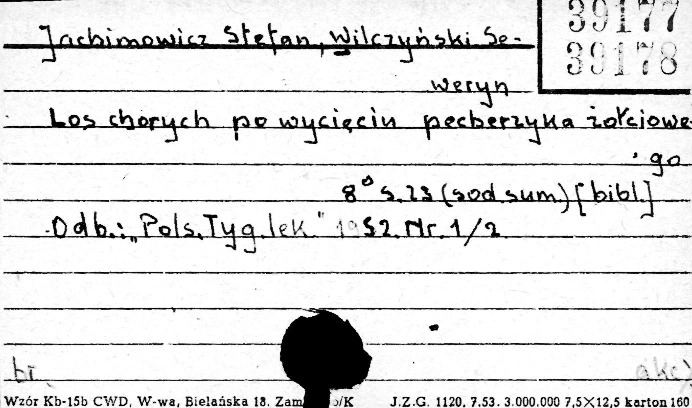 39177
39178
Jachimowicz Stefan, Wilczyński Se-
weryn
Los chorych po wycięciu pęcherzyka żółciowe-
go
8° s. 23 (sod. sum.) [bibl.]
Odb.: „Pols. Tyg. lek." 1952. Nr. 1/2
bł.
akc)
Wzór Kb-15b CWD, W-wa, Bielańska 18. Zam /K J.Z.G. 1120, 7.53. 3.000.000 7,5×12,5 karton 160